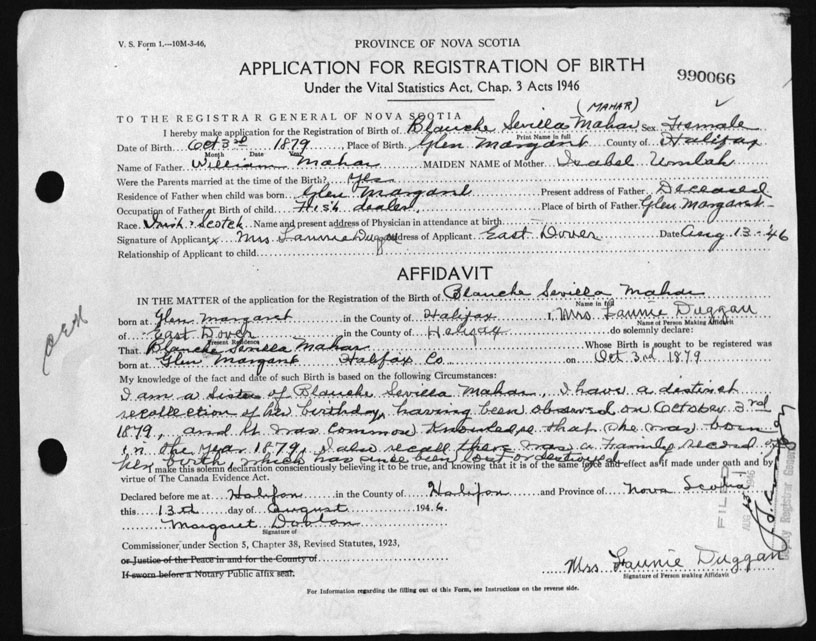 V. S. Form 1.—10M-3-46,
PROVINCE OF NOVA SCOTIA
APPLICATION FOR REGISTRATION OF BIRTH
990066
Under the Vital Statistics Act, Chap. 3 Acts 1946
(MAHAR)
TO THE REGISTRAR GENERAL OF NOVA SCOTIA
I hereby make application for the Registration of Birth of Blanche Sevilla Mahar, Sex Female
Print Name in full
Date of Birth Oct 3rd 1879 Place of Birth Glen Margaret County of Halifax
Month Date Year
Name of Father William Mahar MAIDEN NAME of Mother Isabel Umlah
Were the Parents married at the time of the Birth? Yes
Residence of Father when child was born Glen Margaret Present address of Father Deceased
Occupation of Father at Birth of child Fish dealer. Place of birth of Father Glen Margaret
Race Irish-Scotch Name and present address of Physician in attendance at birth
Signature of Applicant x Mrs. Fannie Duggan Address of Applicant East Dover Date Aug 13-46
Relationship of Applicant to child
AFFIDAVIT
IN THE MATTER of the application for the Registration of Birth of Blanche Sevilla Mahar
Name in full
born at Glen Margaret in the County of Halifax I, Mrs Fannie Duggan
Name of Person Making Affidavit
of East Dover in the County of Halifax do solemnly declare:
Present Residence
That Blanche Sevilla Mahar Whose Birth is sought to be registered was
born at Glen Margaret Halifax Co on Oct 3rd 1879
My knowledge of the fact and date of such Birth is based on the following Circumstances:
I am a sister of Blanche Sevilla Mahar, I have a distinct
recollection of her birthday, having been observed on October 3rd
1879, and it was common knowledge that she was born
in the year 1879, I also recall there was a family record of
her birth which has since been lost or destroyed
make this solemn declaration conscientiously believing it to be true, and knowing that it is of the same force and effect as if made under oath and by
virtue of The Canada Evidence Act.
Declared before me at Halifax in the County of Halifax and Province of Nova Scotia
this 13th day of August 1946
Margaret Doolan
Signature of
Commissioner under Section 5, Chapter 38, Revised Statutes, 1923,
or Justice of the Peace in and for the County of
If sworn before a Notary Public affix seal.
Mrs Fannie Duggan
Signature of Person making Affidavit
For Information regarding the filling out of this Form, see Instructions on the reverse side.
FILED
Deputy Registrar General